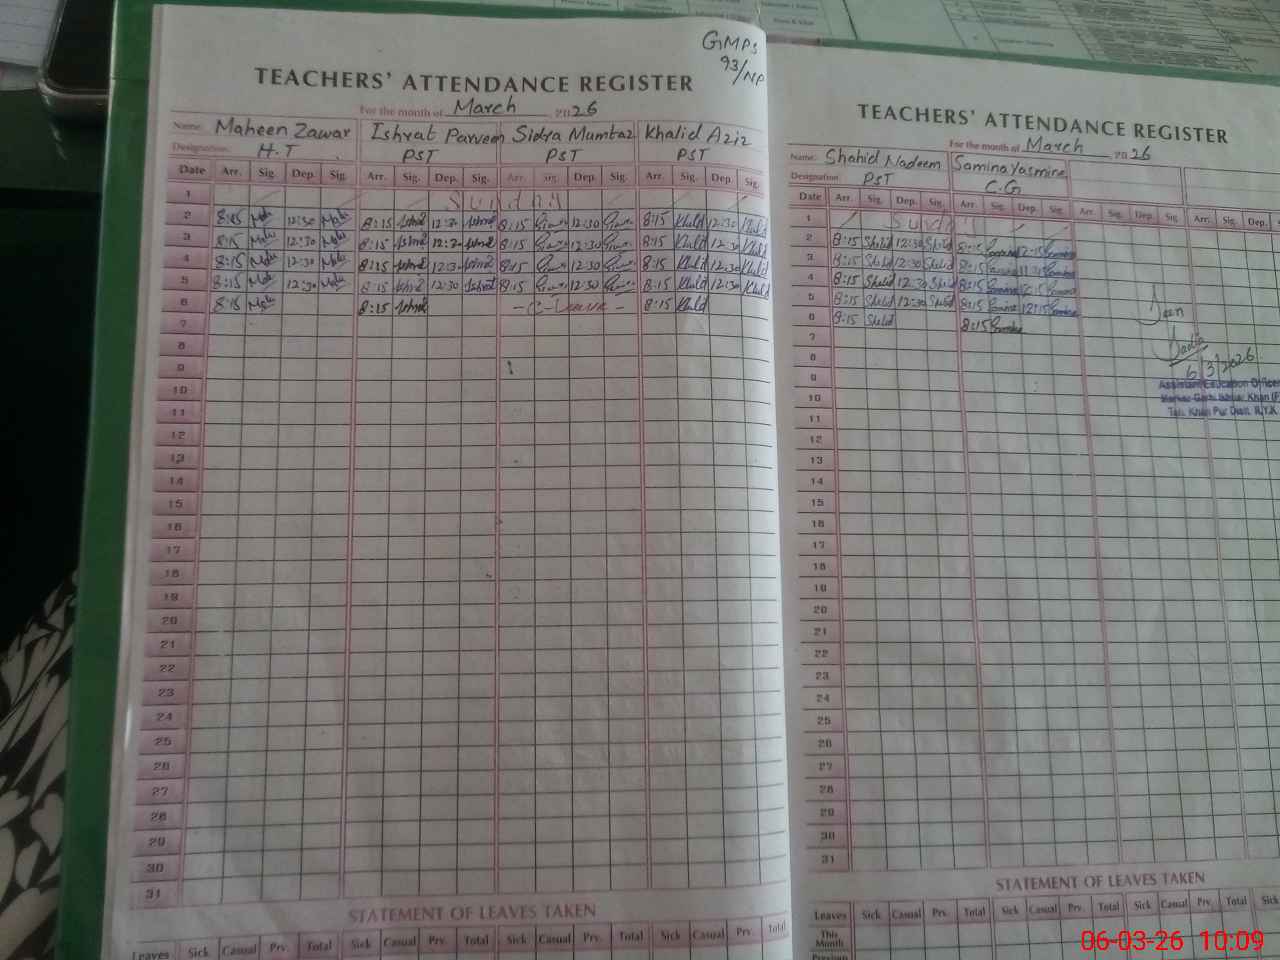 GMPS
93/NP
TEACHERS' ATTENDANCE REGISTER
For the month of March 2026
Name: Maheen Zawar Ishrat Parveen Sidra Mumtaz Khalid Aziz
Designation: H.T PST PST PST
Date Arr. Sig. Dep. Sig. Arr. Sig. Dep. Sig. Arr. Sig. Dep. Sig. Arr. Sig. Dep. Sig.
1 Sunday
2 8:15 12:30 8:15 Ishrat 12:30 Ishrat 8:15 12:30 8:15 Khalid 12:30 Khalid
3 8:15 12:30 8:15 Ishrat 12:30 Ishrat 8:15 12:30 8:15 Khalid 12:30 Khalid
4 8:15 12:30 8:15 Ishrat 12:30 Ishrat 8:15 12:30 8:15 Khalid 12:30 Khalid
5 8:15 12:30 8:15 Ishrat 12:30 Ishrat 8:15 12:30 8:15 Khalid 12:30 Khalid
6 8:15 8:15 Ishrat - C-Leave - 8:15 Khalid
7
8
9
10
11
12
13
14
15
16
17
18
19
20
21
22
23
24
25
26
27
28
29
30
31
STATEMENT OF LEAVES TAKEN
Leaves Sick Casual Prv. Total Sick Casual Prv. Total Sick Casual Prv. Total Sick Casual Prv. Total
TEACHERS' ATTENDANCE REGISTER
For the month of March 2026
Name: Shahid Nadeem Samina Yasmine
Designation PST C.G
Date Arr. Sig. Dep. Sig. Arr. Sig. Dep. Sig. Arr. Sig. Dep. Sig. Arr. Sig. Dep.
1 Sunday
2 8:15 Shahid 12:30 Shahid 8:15 Samina 12:15 Samina
3 8:15 Shahid 12:30 Shahid 8:15 Samina Samina
4 8:15 Shahid 12:30 Shahid 8:15 Samina 12:15 Samina
5 8:15 Shahid 12:30 Shahid 8:15 Samina 12:15 Samina
6 8:15 Shahid 8:15 Samina
7
8
9
10
11
12
13
14
15
16
17
18
19
20
21
22
23
24
25
26
27
28
29
30
31
Seen
Sadia
6/3/2026
Assistant Education Officer
Teh. Khan Pur Distt. R.Y.K
STATEMENT OF LEAVES TAKEN
Leaves Sick Casual Prv. Total Sick Casual Prv. Total Sick Casual Prv. Total Sick
This Month
Previous
06-03-26 10:09